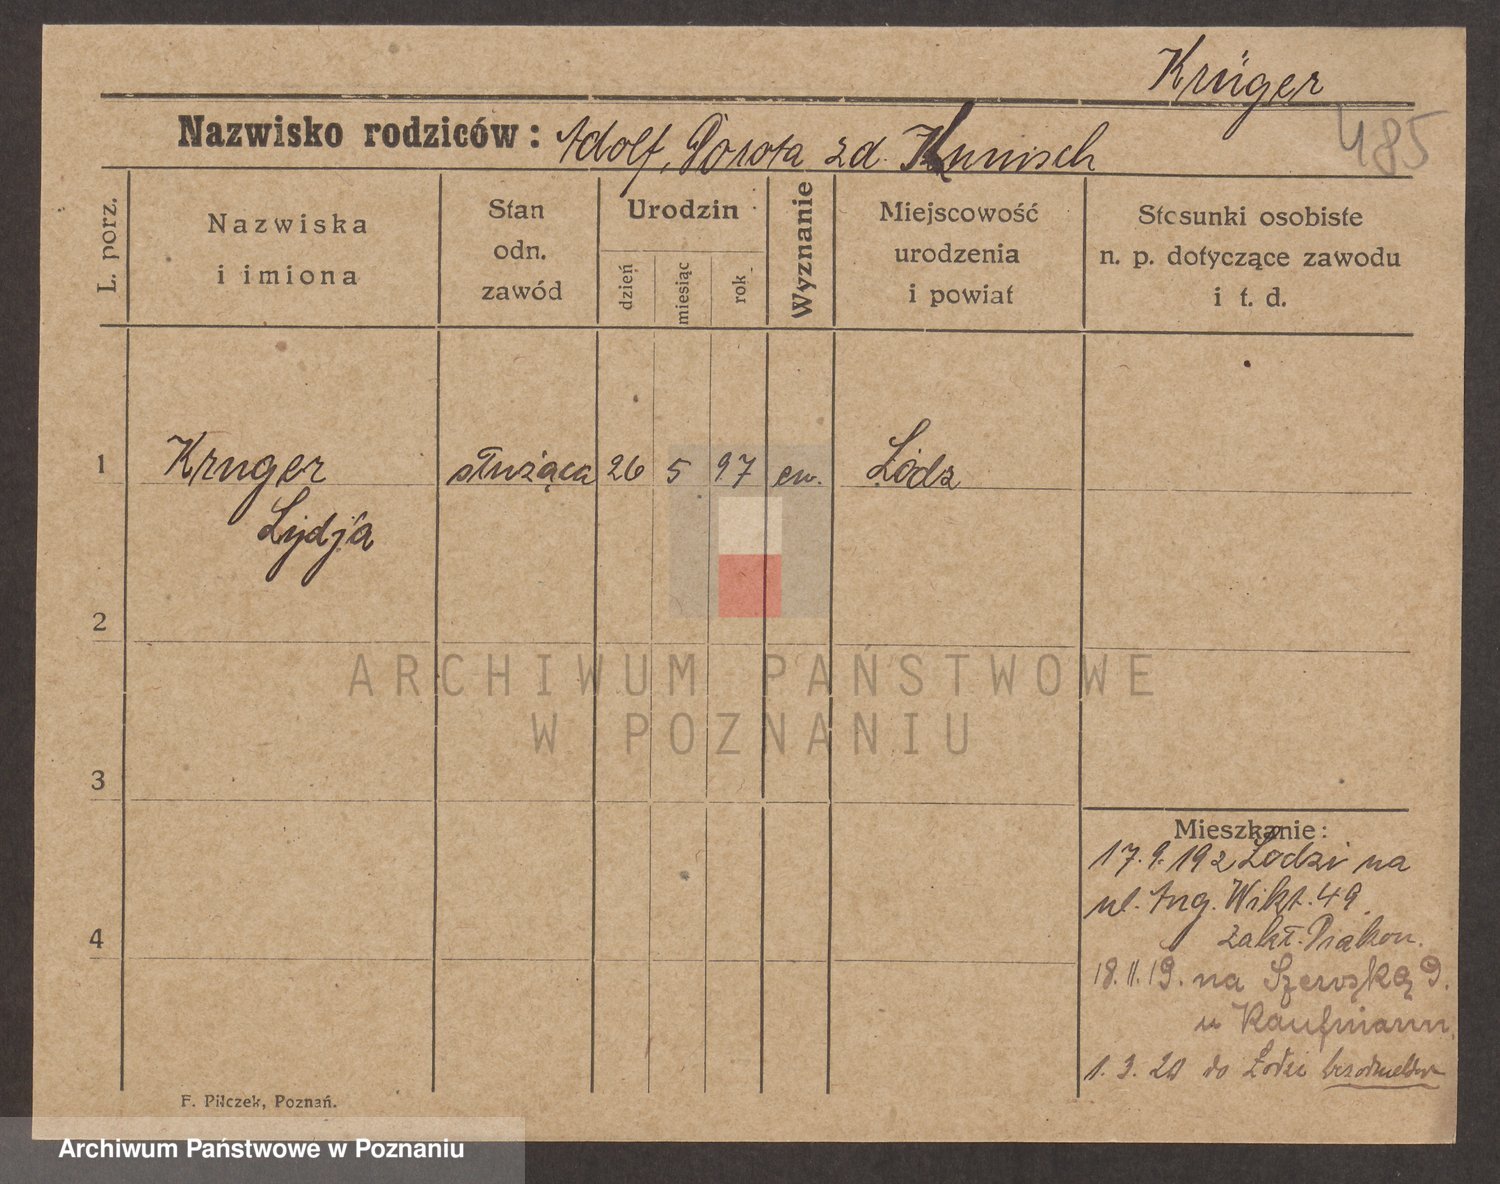 Krüger
485
Nazwisko rodziców: Adolf, Dorota zd. Kunisch
L. porz.
Nazwiska
i imiona
Stan
odn.
zawód
Urodzin
dzień
miesiąc
rok
Wyznanie
Miejscowość
urodzenia
i powiat
Stosunki osobiste
n. p. dotyczące zawodu
i t. d.
1 Kruger służąca 26 5 97 ew. Łódz
Lydja
2
3
4
Mieszkanie:
17.9.19 z Łodzi na
ul. Aug. Wikt. 49
zakł. Diakon.
18.11.19. na Szeroską 9.
u Kaufmann
1.3.20 do Łodzi
F. Pilczek, Poznań.
ARCHIWUM PAŃSTWOWE
W POZNANIU
Archiwum Państwowe w Poznaniu